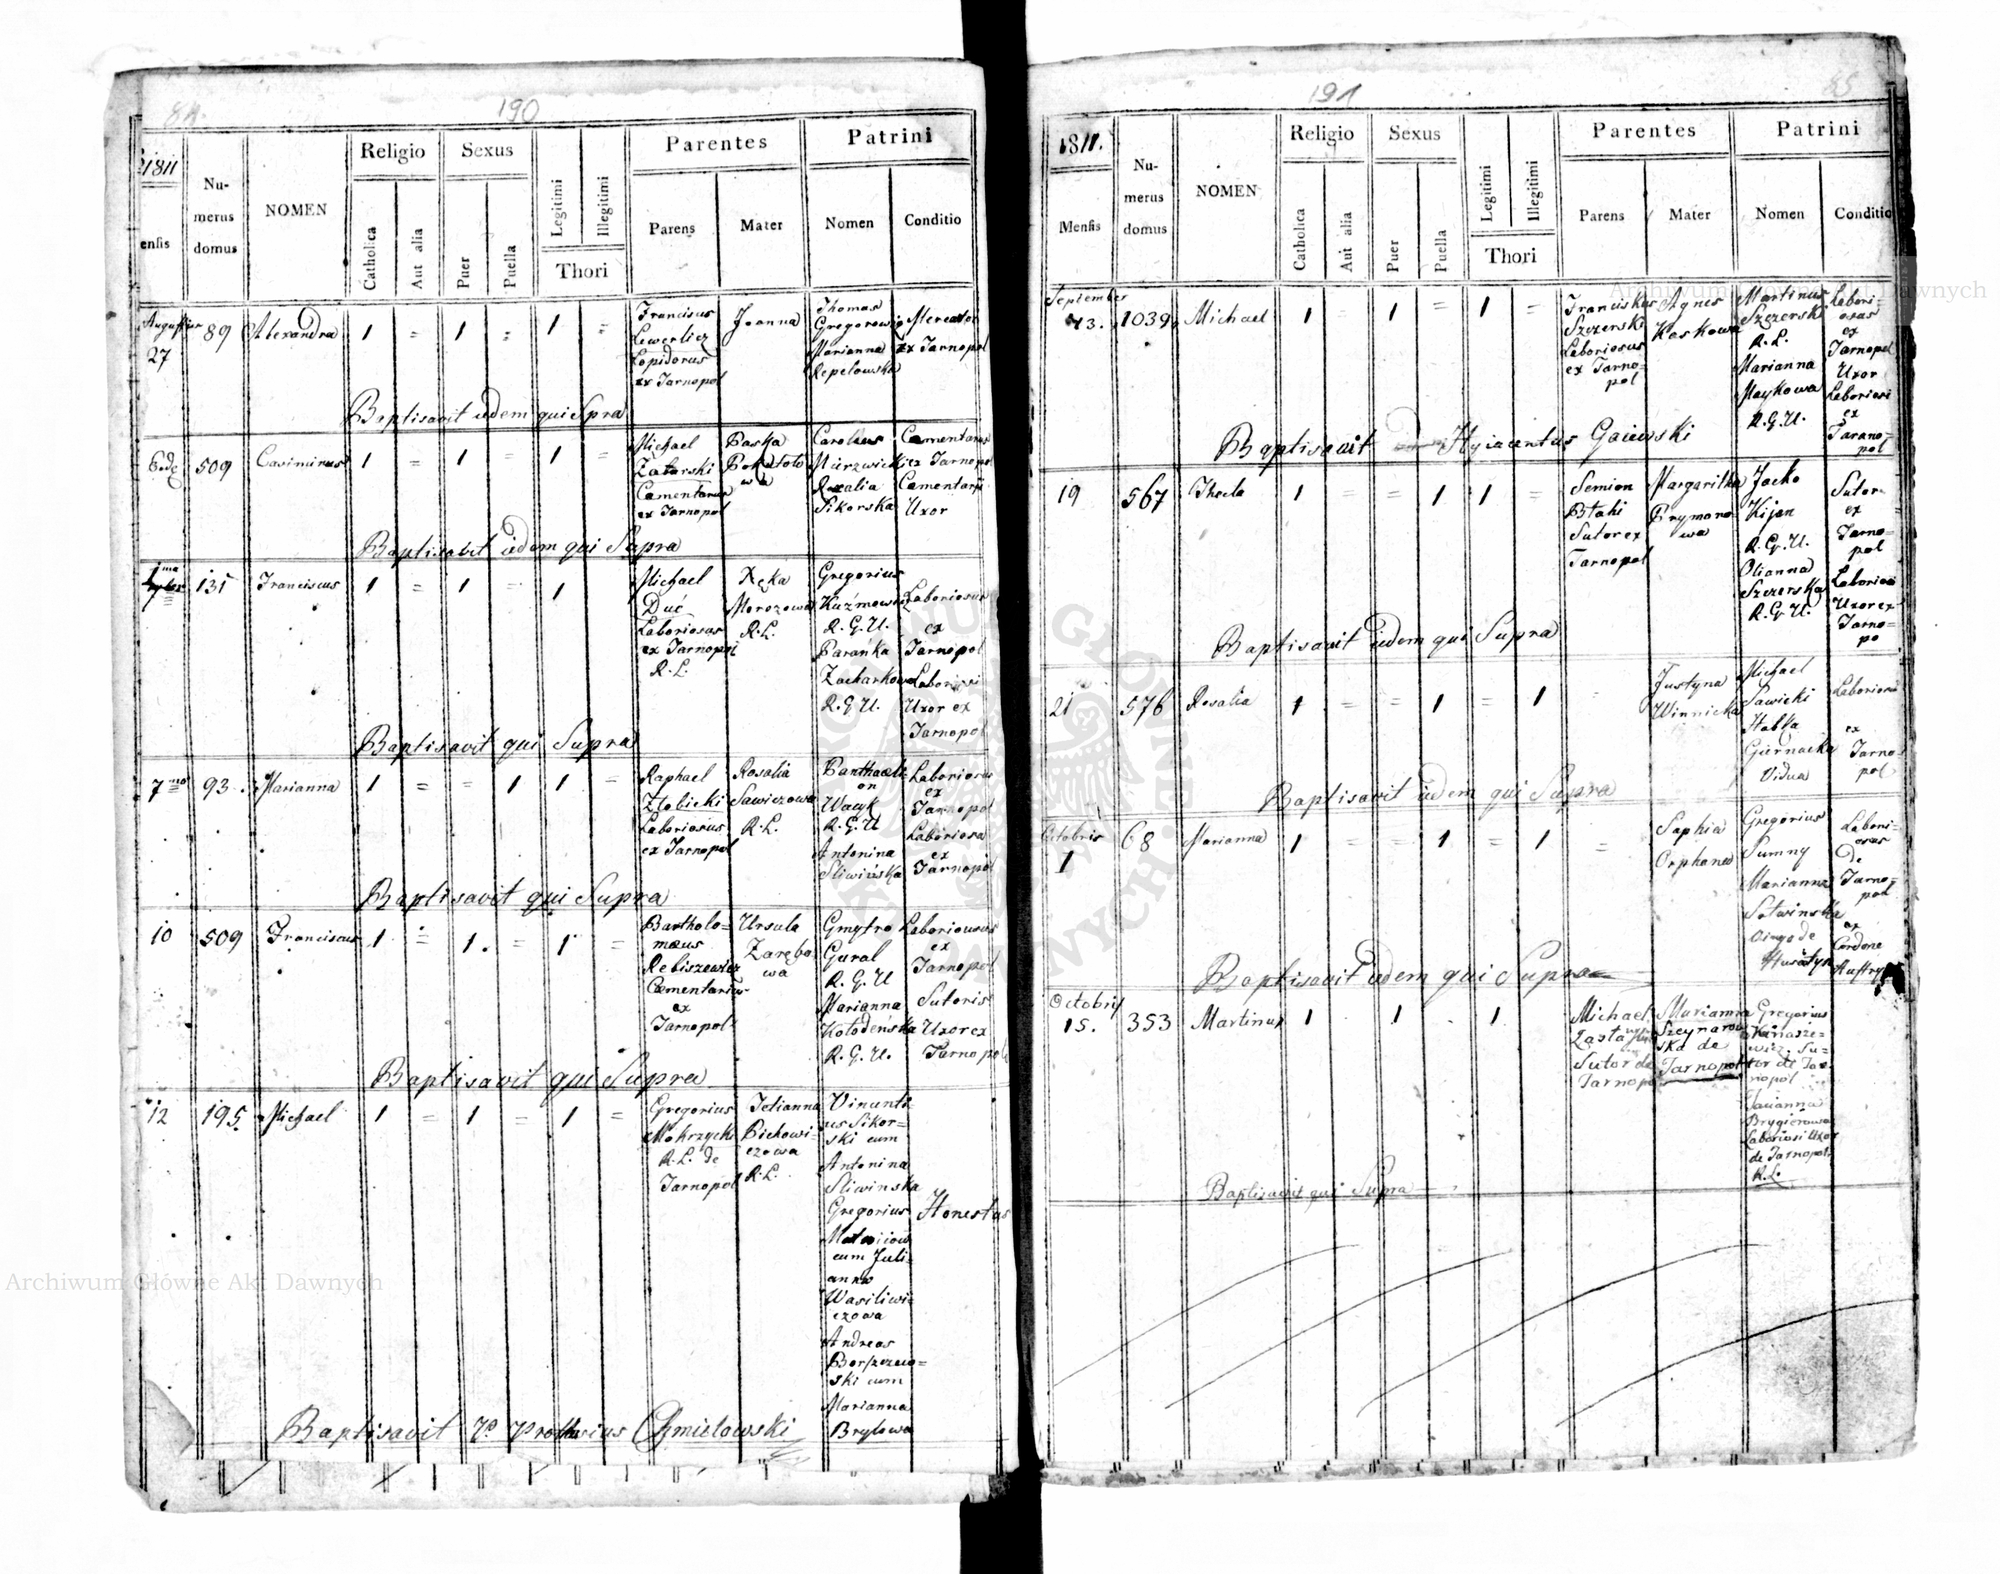 84.
190
1811
ensis
Nu-
merus
domus
NOMEN
Religio
Catholica
Aut alia
Sexus
Puer
Puella
Legitimi
Illegitimi
Thori
Parentes
Parens
Mater
Patrini
Nomen
Conditio
27
89
Alexandra
1 = 1 = 1 =
Franciscus
Lewerlicz
Lapidarus
ex Tarnopol
Joanna
Thomas
Gregorowicz
Marianna
Repelowska
Mercator
ex Tarnopol
Baptisavit idem qui Spra
509
Casimirus
1 = 1 = 1 =
Michael
Zatorski
Cementarius
ex Tarnopol
Paska
Carolus
Mierzwicki
Rozalia
Sikorska
Cementarius
ex Tarnopol
Cementarij
Uxor
Baptisavit idem qui Supra
131
Franciscus
1 = 1 = 1
Michael
Duć
Laboriosus
ex Tarnopol
R. L.
Morozowa
R. L.
Gregorius
Kuźmowicz
R. G. U.
Parańka
Zacharkowa
R. G. U.
Laboriosus
ex
Tarnopol
Laboriosi
Uxor ex
Tarnopol
Baptisavit qui Supra
7ma
93
Marianna
1 = = 1 1 =
Raphael
Złobicki
Laboriosus
ex Tarnopol
Rosalia
Sawiczowa
R. L.
Panthaele
on
Wacyk
R. G. U
Antonina
Sliwińska
Laboriosus
ex
Tarnopol
Laboriosa
ex
Tarnopol
Baptisavit qui Supra
10
509
Franciscus
1 = 1. = 1 =
Bartholo=
maeus
Rebiszewicz
Cementarius
ex
Tarnopol
Ursula
Zarębo
wa
Gmytro
Gural
R. G. U
Marianna
Kołodeńska
R. G. U.
Laboriosus
ex
Tarnopol
Sutoris
Uxor ex
Tarnopol
Baptisavit qui Supra
12
195.
Michael
1 = 1 = 1 =
Gregorius
Mokrzycki
R. L. de
Tarnopol
Tetianna
Bichowi=
czowa
R. L.
Vincenti=
us Sikor=
ski cum
Antonina
Sliwinska
Gregorius
cum Juli=
anna
Wasiliwi=
czowa
Andreas
Borszczew=
ski cum
Marianna
Brylowa
Honestus
Baptisavit P. Protasius Chmielowski
191
85
1811.
Mensis
Nu-
merus
domus
NOMEN
Religio
Catholica
Aut alia
Sexus
Puer
Puella
Legitimi
Illegitimi
Thori
Parentes
Parens
Mater
Patrini
Nomen
Conditio
September
13.
1039
Michael
1 = 1 = 1 =
Franciskus
Szczerski
Laboriosus
ex Tarno=
pol
Agnes
Kaskowa
Martinus
Szczerski
R. L.
Marianna
Maykowa
R. G. U.
Labori=
osus
ex
Tarnopol
Uxor
Laboriosi
ex
Tarano=
pol
Baptisavit Hyiacentus Gaiewski
19
567
Thecla
1 = = 1 1 =
Semion
Ptahi
Sutor ex
Tarnopol
Margaritha
Prymoro=
wa
Jacko
Kijan
R. G. U.
Olianna
Szczerska
R. G. U.
Sutor
ex
Tarno=
pol
Laboriosi
Uxor ex
Tarno=
po
Baptisavit idem qui Supra
21
576
Rosalia
1 = = 1 = 1
Justyna
Winnicka
Michael
Sawicki
Habka
Gurnacka
Vidua
Laboriosi
ex
Tarno=
pol
Baptisavit idem qui Supra
Octobris
1
68
Marianna
1 = = 1 = 1
Sophia
Orphana
Gregorius
Sumny
Marianna
Sotwinska
Husiatyn
Labori=
osus
de
Tarno=
pol
ex
Cordone
Baptisavit idem qui Supra
Octobris
15.
353
Martinus
1 1 1
Michael
Sutor de
Tarnopol
Marianna
Szeynarow
ska de
Tarnopol
Gregorius
Kunasze=
wicz, Su=
tor de Tar
nopol
Marianna
Brygierowa
Laboriosi Uxor
de Tarnopol.
R. L.
Baptisavit qui Supra
Archiwum Główne Akt Dawnych
Archiwum Główne Akt Dawnych